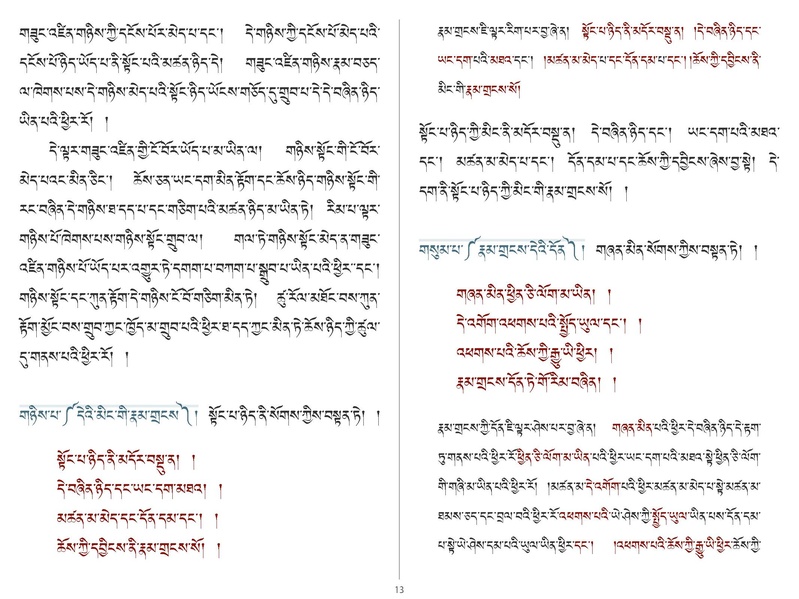 གཟུང་འཛིན་གཉིས་ཀྱི་དངོས་པོར་མེད་པ་དང་། དེ་གཉིས་ཀྱི་དངོས་པོ་མེད་པའི་
དངོས་པོ་ཉིད་ཡོད་པ་ནི་སྟོང་པའི་མཚན་ཉིད་དེ། གཟུང་འཛིན་གཉིས་རྣམ་བཅད་
ལ་ཁེགས་པས་དེ་གཉིས་མེད་པའི་སྟོང་ཉིད་ཡོངས་གཅོད་དུ་གྲུབ་པ་དེ་དེ་བཞིན་ཉིད་
ཡིན་པའི་ཕྱིར་རོ། །
དེ་ལྟར་གཟུང་འཛིན་གྱི་ངོ་བོར་ཡོད་པ་མ་ཡིན་ལ། གཉིས་སྟོང་གི་ངོ་བོར་
མེད་པའང་མིན་ཅིང་། ཆོས་ཅན་ཡང་དག་མིན་རྟོག་དང་ཆོས་ཉིད་གཉིས་སྟོང་གི་
རང་བཞིན་དེ་གཉིས་ཐ་དད་པ་དང་གཅིག་པའི་མཚན་ཉིད་མ་ཡིན་ཏེ། རིམ་པ་ལྟར་
གཉིས་པོ་ཁེགས་པས་གཉིས་སྟོང་གྲུབ་ལ། གལ་ཏེ་གཉིས་སྟོང་མེད་ན་གཟུང་
འཛིན་གཉིས་པོ་ཡོད་པར་འགྱུར་ཏེ་དགག་པ་བཀག་པ་སྒྲུབ་པ་ཡིན་པའི་ཕྱིར་དང་།
གཉིས་སྟོང་དང་ཀུན་རྟོག་དེ་གཉིས་ངོ་བོ་གཅིག་མིན་ཏེ། ཚུ་རོལ་མཐོང་བས་ཀུན་
རྟོག་མྱོང་བས་གྲུབ་ཀྱང་ཁྱོད་མ་གྲུབ་པའི་ཕྱིར་ཐ་དད་ཀྱང་མིན་ཏེ་ཆོས་ཉིད་ཀྱི་ཚུལ་
དུ་གནས་པའི་ཕྱིར་རོ། །
གཉིས་པ་༼དེའི་མིང་གི་རྣམ་གྲངས་༽། སྟོང་པ་ཉིད་ནི་སོགས་ཀྱིས་བསྟན་ཏེ། །
སྟོང་པ་ཉིད་ནི་མདོར་བསྡུ་ན། །
དེ་བཞིན་ཉིད་དང་ཡང་དག་མཐའ། །
མཚན་མ་མེད་དང་དོན་དམ་དང་། །
ཆོས་ཀྱི་དབྱིངས་ནི་རྣམ་གྲངས་སོ། །
རྣམ་གྲངས་ཇི་ལྟར་རིག་པར་བྱ་ཞེ་ན། སྟོང་པ་ཉིད་ནི་མདོར་བསྡུ་ན། །དེ་བཞིན་ཉིད་དང་
ཡང་དག་པའི་མཐའ་དང་། །མཚན་མ་མེད་པ་དང་དོན་དམ་པ་དང་། །ཆོས་ཀྱི་དབྱིངས་ནི་
མིང་གི་རྣམ་གྲངས་སོ།
སྟོང་པ་ཉིད་ཀྱི་མིང་ནི་མདོར་བསྡུ་ན། དེ་བཞིན་ཉིད་དང་། ཡང་དག་པའི་མཐའ་
དང་། མཚན་མ་མེད་པ་དང་། དོན་དམ་པ་དང་ཆོས་ཀྱི་དབྱིངས་ཞེས་བྱ་སྟེ། དེ་
དག་ནི་སྟོང་པ་ཉིད་ཀྱི་མིང་གི་རྣམ་གྲངས་སོ། །
གསུམ་པ་༼རྣམ་གྲངས་དེའི་དོན་༽། གཞན་མིན་སོགས་ཀྱིས་བསྟན་ཏེ། །
གཞན་མིན་ཕྱིན་ཅི་ལོག་མ་ཡིན། །
དེ་འགོག་འཕགས་པའི་སྤྱོད་ཡུལ་དང་། །
འཕགས་པའི་ཆོས་ཀྱི་རྒྱུ་ཡི་ཕྱིར། །
རྣམ་གྲངས་དོན་ཏེ་གོ་རིམ་བཞིན། །
རྣམ་གྲངས་ཀྱི་དོན་ཇི་ལྟར་ཤེས་པར་བྱ་ཞེ་ན། གཞན་མིན་པའི་ཕྱིར་དེ་བཞིན་ཉིད་དེ་རྟག་
ཏུ་གནས་པའི་ཕྱིར་རོ་ཕྱིན་ཅི་ལོག་མ་ཡིན་པའི་ཕྱིར་ཡང་དག་པའི་མཐའ་སྟེ་ཕྱིན་ཅི་ལོག་
གི་གཞི་མ་ཡིན་པའི་ཕྱིར་རོ། །མཚན་མ་དེ་འགོག་པའི་ཕྱིར་མཚན་མ་མེད་པ་སྟེ་མཚན་མ་
ཐམས་ཅད་དང་བྲལ་བའི་ཕྱིར་རོ་འཕགས་པའི་ཡེ་ཤེས་ཀྱི་སྤྱོད་ཡུལ་ཡིན་པས་དོན་དམ་
པ་སྟེ་ཡེ་ཤེས་དམ་པའི་ཡུལ་ཡིན་ཕྱིར་དང་། །འཕགས་པའི་ཆོས་ཀྱི་རྒྱུ་ཡི་ཕྱིར་ཆོས་ཀྱི་
13